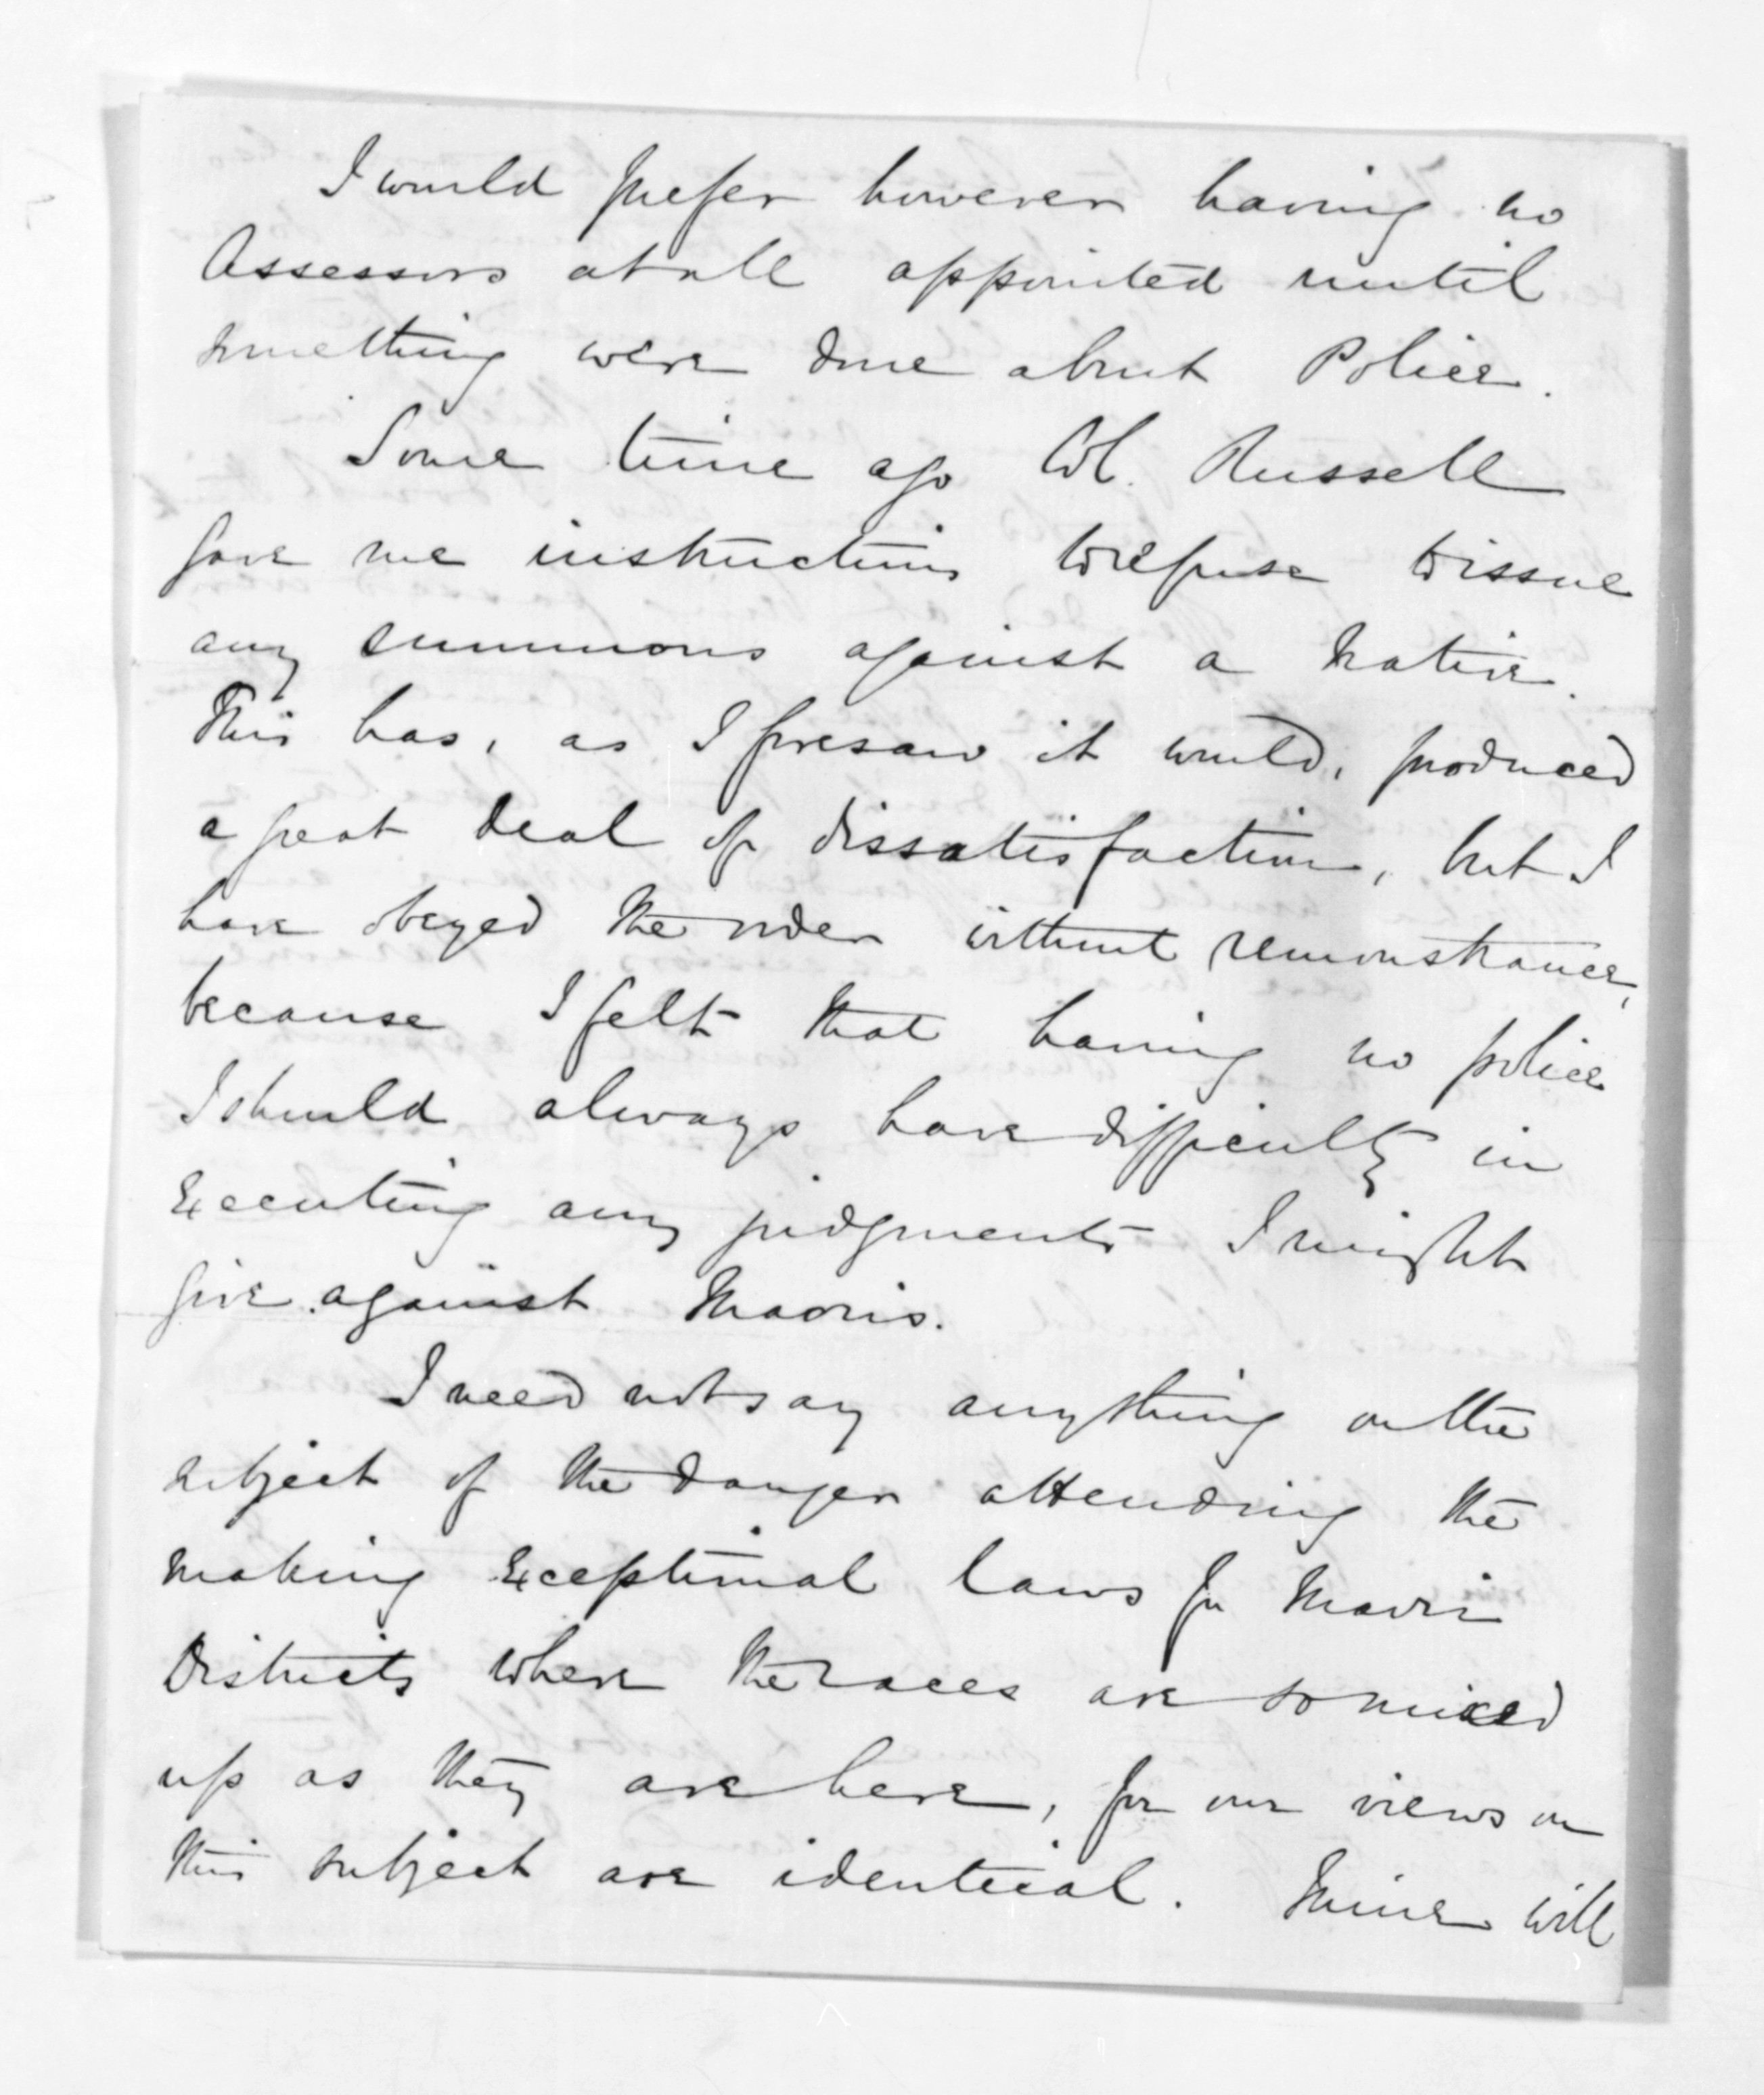 I would prefer however having no
Assessors at all appointed until
something were done about Police.
Some time ago Col. Russell
gave me instructions to refuse to issue
any summons against a Native.
This has, as I foresaw it would, produced
a great deal of dissatisfaction, but I
have obeyed the order without remonstrance,
because I felt that having no police
I should always have difficulty in
executing any judgments I might
give against Maoris.
I need not say anything on the
subject of the danger attending the
making exceptional laws for Maori
Districts where the races are so mixed
up as they are here, for our views on
this subject are identical. Mine will